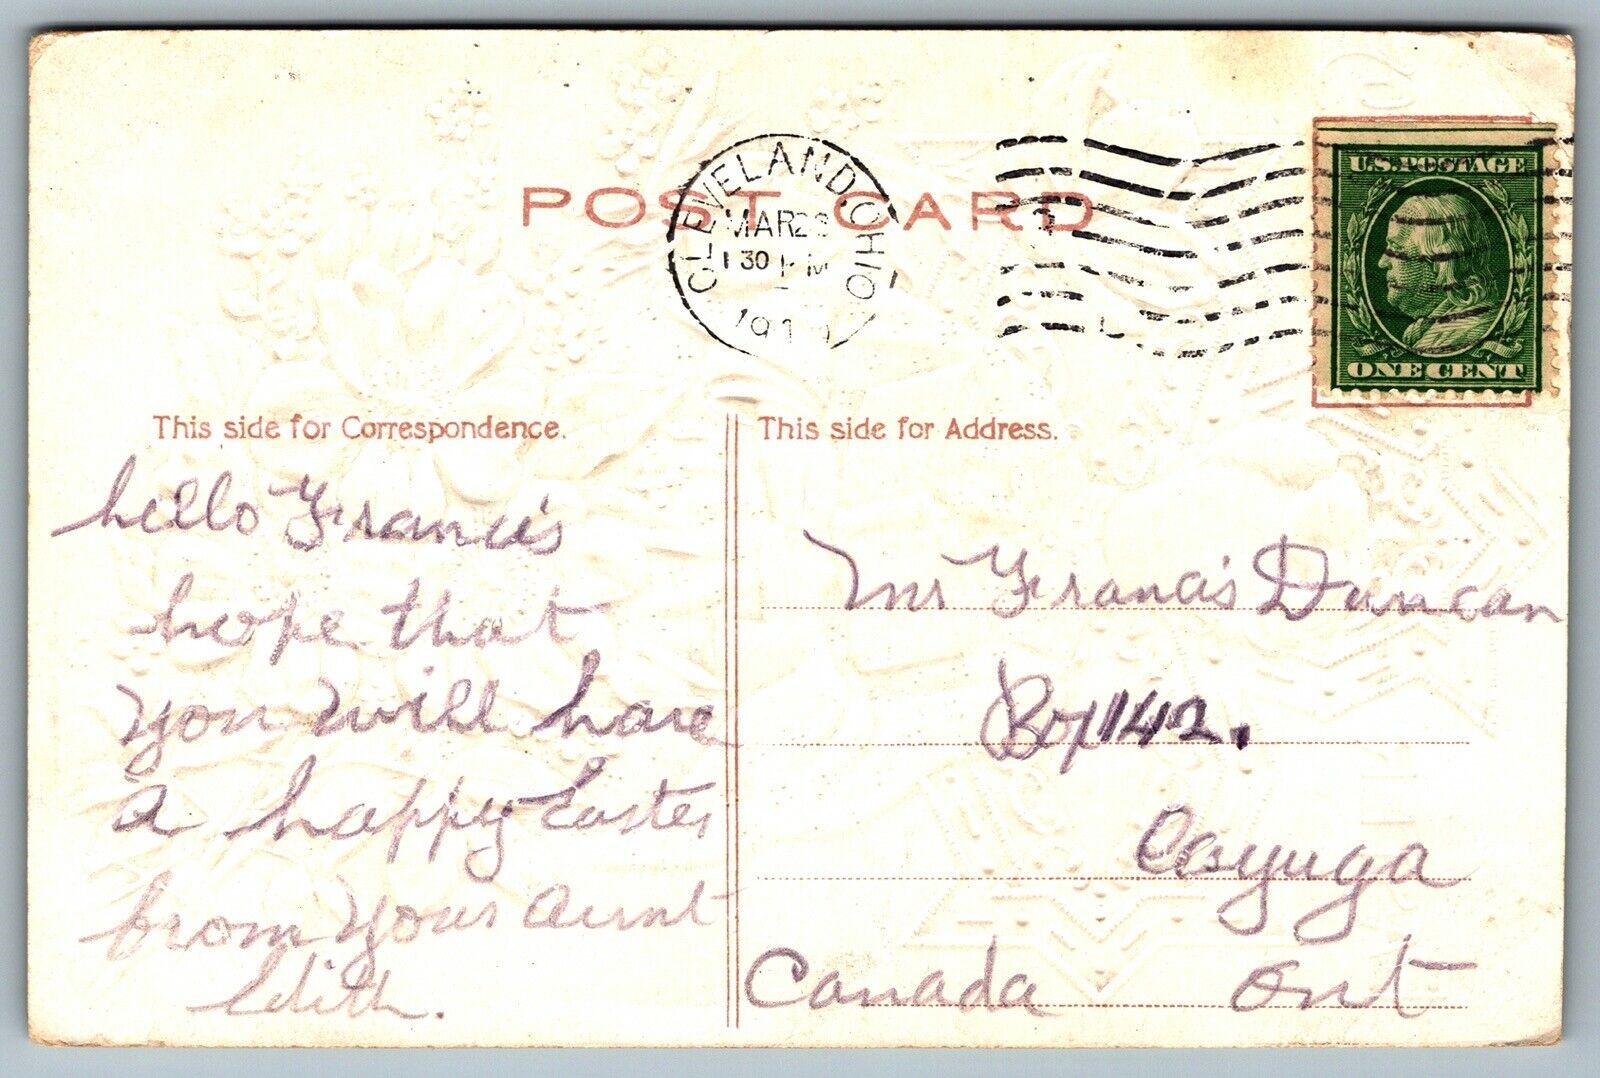 POST CARD
CLEVELAND, OHIO
MAR
30 M
19
U.S. POSTAGE
ONE CENT
This side for Correspondence.
This side for Address.
hello Francis
hope that
you will have
a happy Easter
from your aunt
Edith.
Mr Francis Duncan
Box 142.
Cayuga
Canada Ont